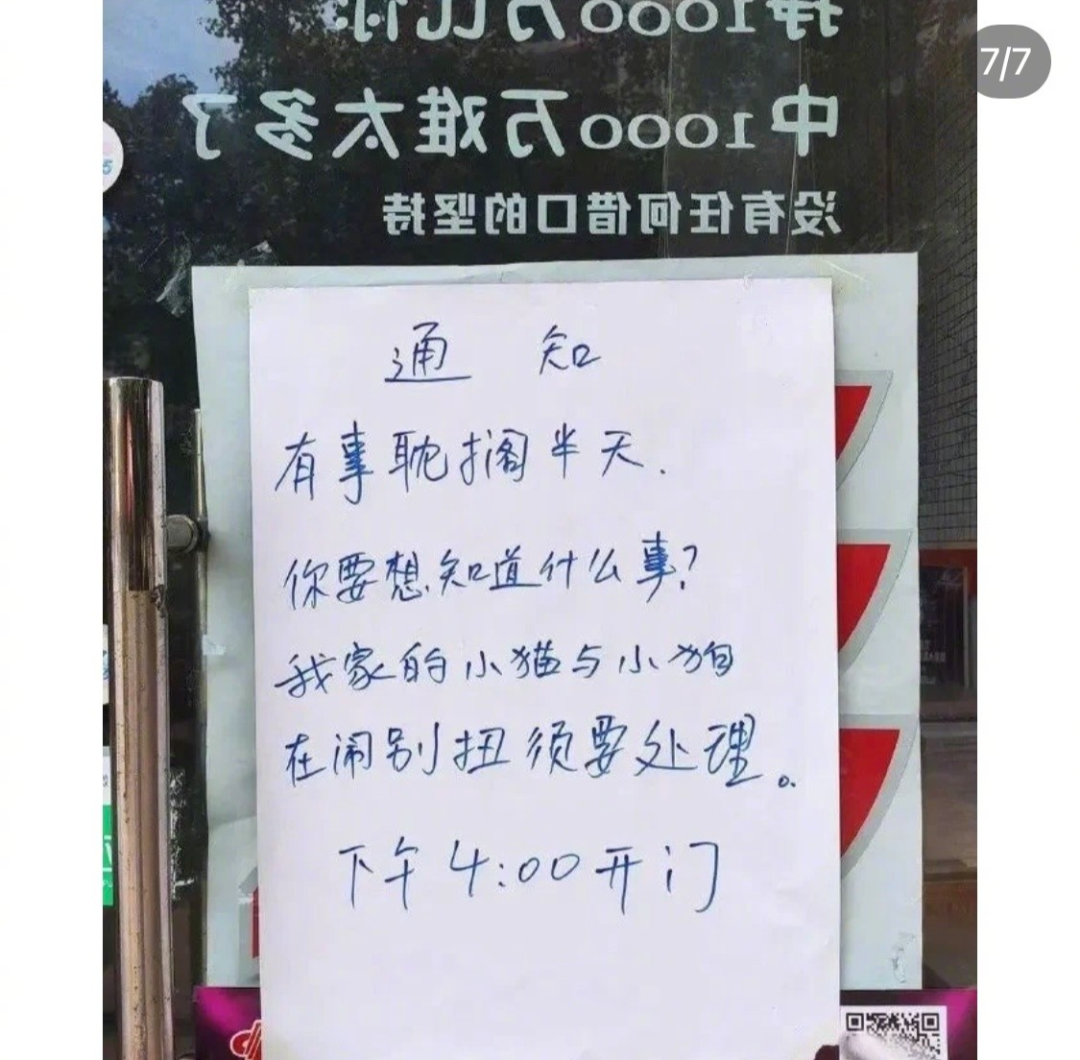 7/7
挣1000万比你
中1000万难太多了
没有任何借口的坚持
通 知
有事耽搁半天.
你要想知道什么事?
我家的小猫与小狗
在闹别扭须要处理。
下午4:00开门